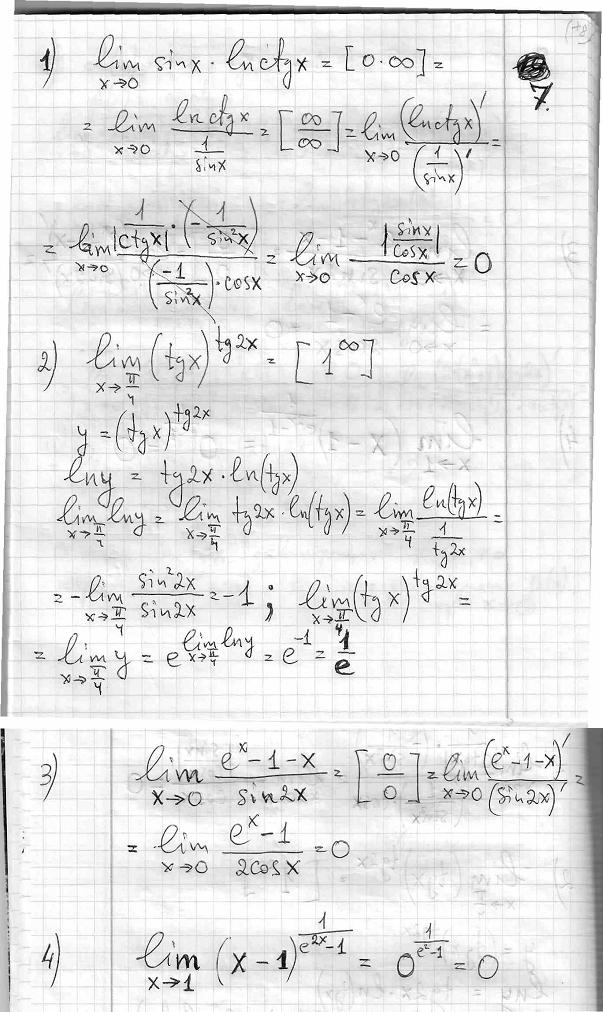 1) lim_{x→0} sinx · ln ctgx = [0·∞] =
7.
= lim_{x→0} \frac{ln ctgx}{\frac{1}{sinx}} = [\frac{∞}{∞}] = lim_{x→0} \frac{(ln ctgx)'}{(\frac{1}{sinx})'} =
= lim_{x→0} \frac{|\frac{1}{ctgx}| · (-\frac{1}{sin²x})}{(\frac{-1}{sin²x}) · cosx} = lim_{x→0} \frac{|\frac{sinx}{cosx}|}{cosx} = 0
2) lim_{x→\frac{π}{4}} (tgx)^{tg2x} = [1^∞]
y = (tgx)^{tg2x}
lny = tg2x · ln(tgx)
lim_{x→\frac{π}{4}} lny = lim_{x→\frac{π}{4}} tg2x · ln(tgx) = lim_{x→\frac{π}{4}} \frac{ln(tgx)}{\frac{1}{tg2x}} =
= -lim_{x→\frac{π}{4}} \frac{sin²2x}{sin2x} = -1 ; lim_{x→\frac{π}{4}} (tgx)^{tg2x} =
= lim_{x→\frac{π}{4}} y = e^{lim_{x→\frac{π}{4}} lny} = e^{-1} = \frac{1}{e}
3) lim_{x→0} \frac{e^x-1-x}{sin2x} = [\frac{0}{0}] = lim_{x→0} \frac{(e^x-1-x)'}{(sin2x)'} =
= lim_{x→0} \frac{e^x-1}{2cosx} = 0
4) lim_{x→1} (x-1)^{\frac{1}{e^{2x}-1}} = 0^{\frac{1}{e²-1}} = 0